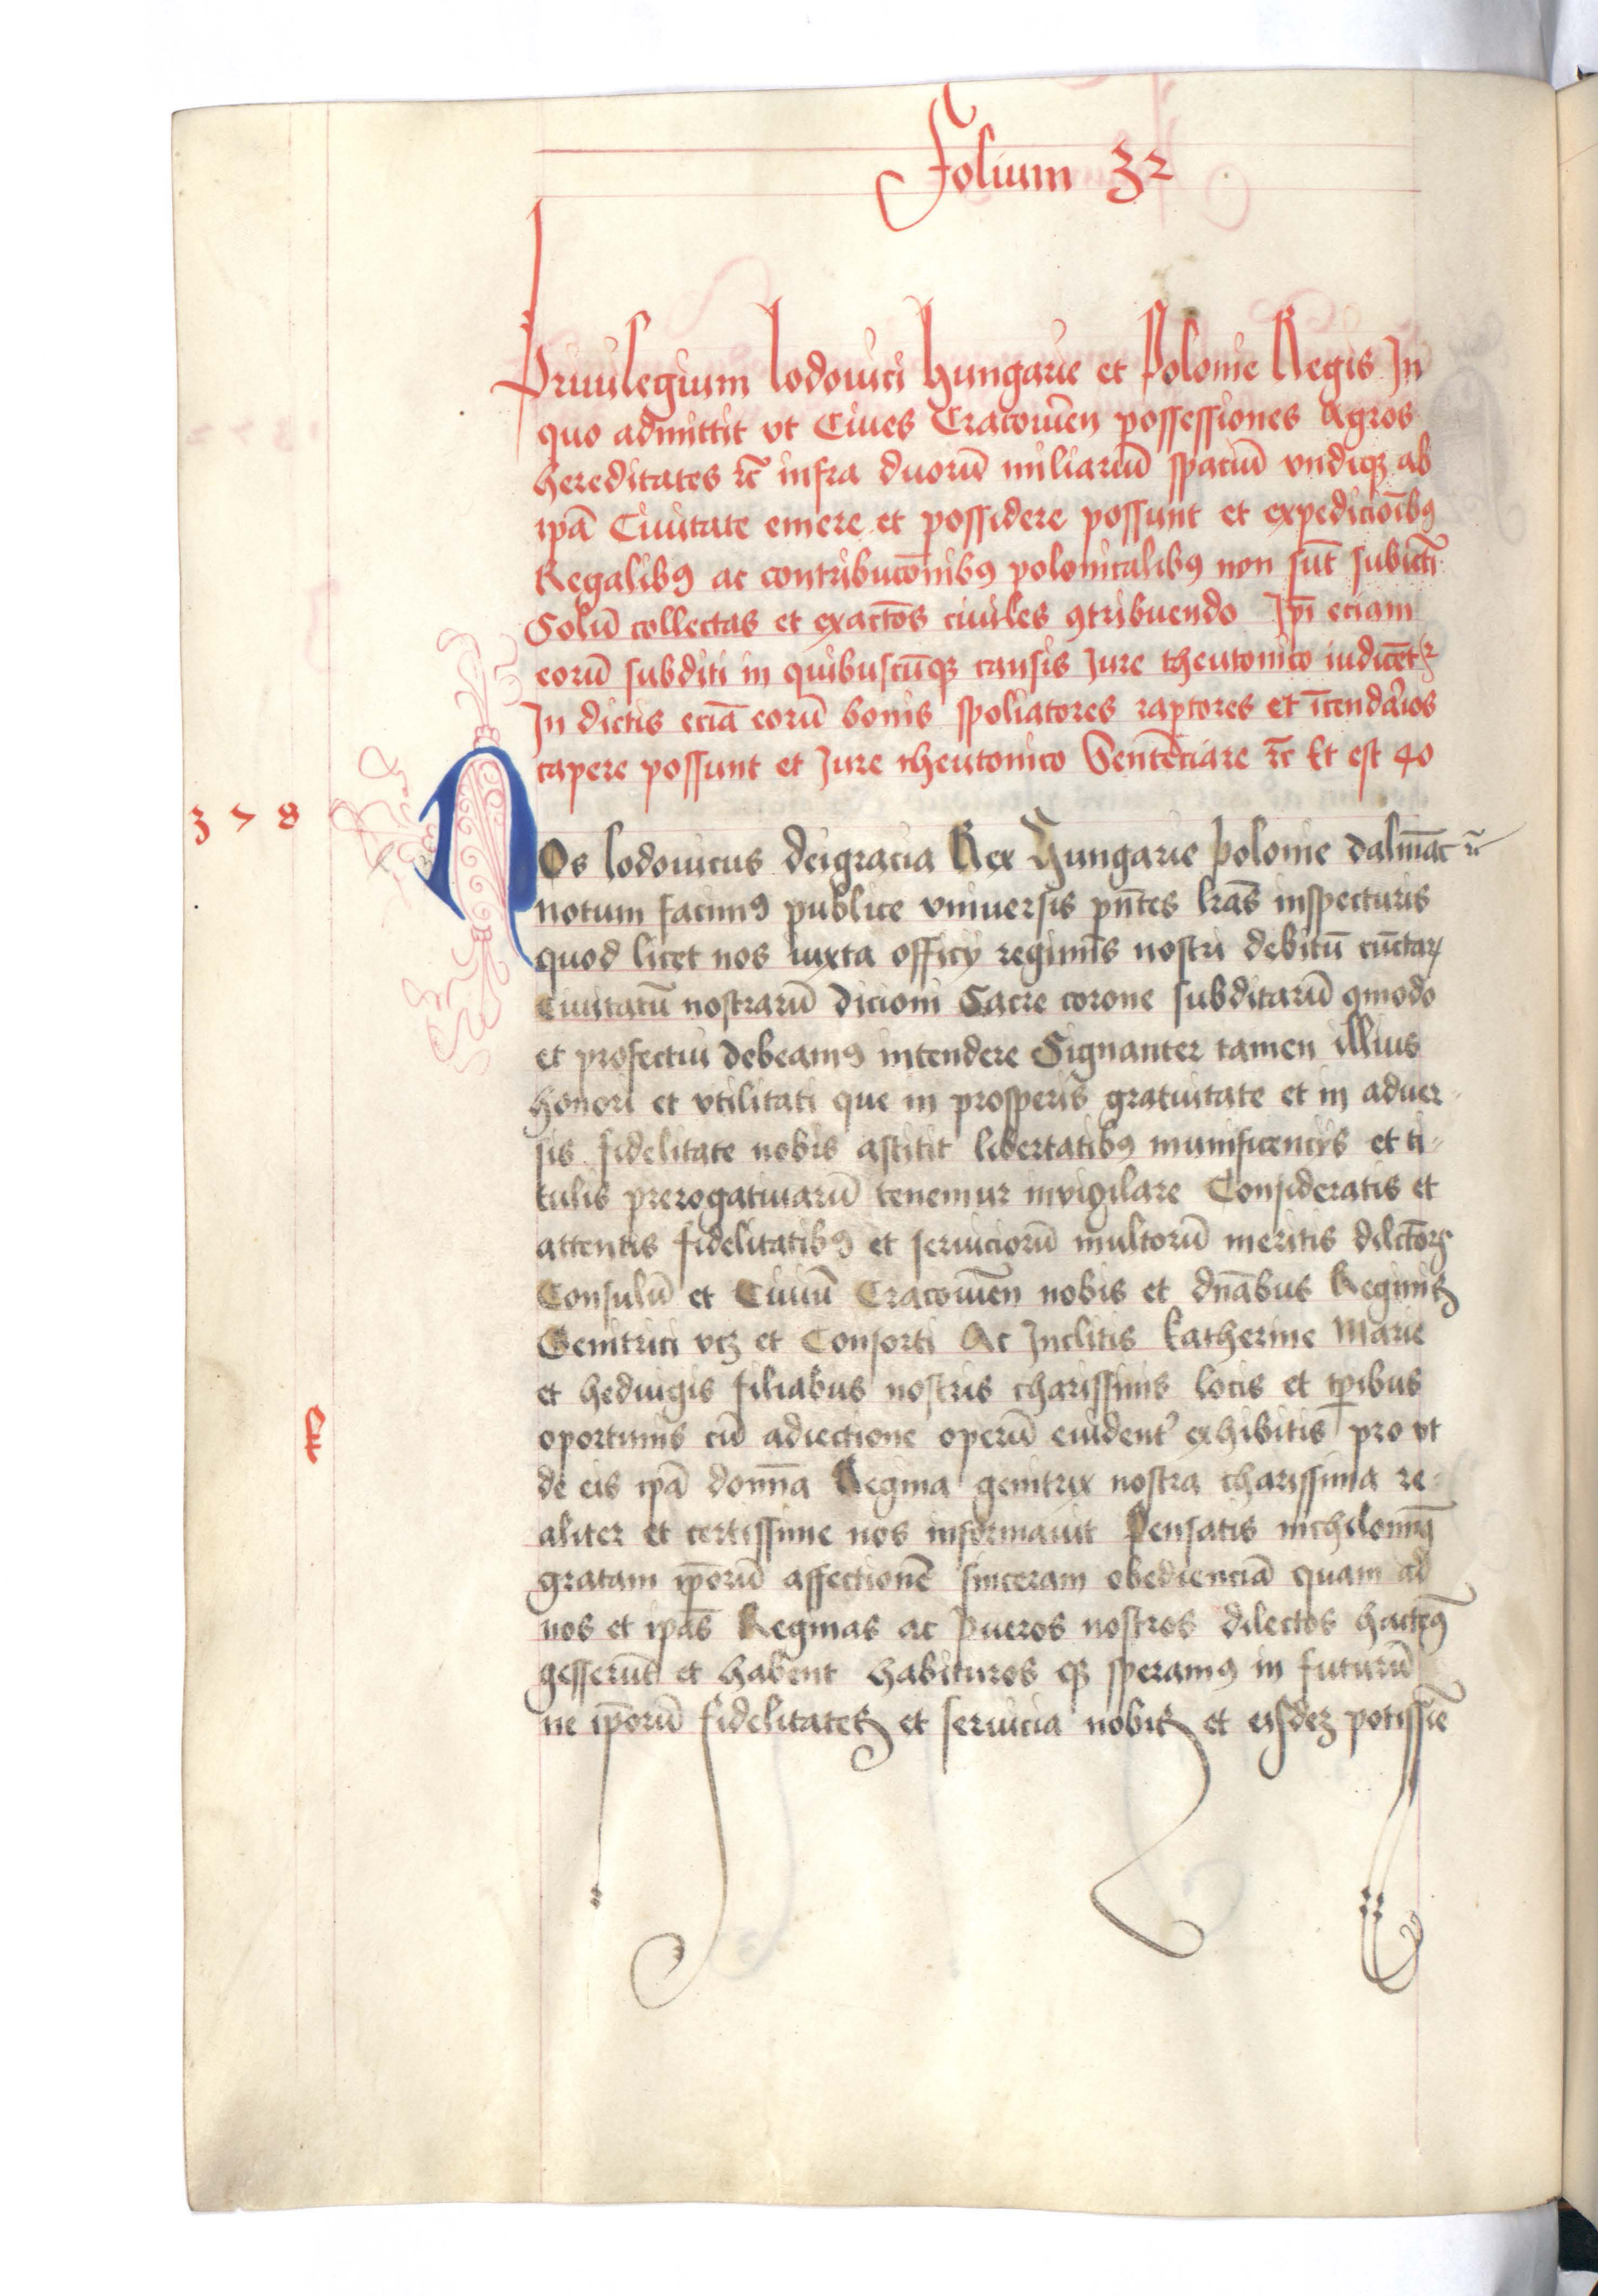 Folium 32
Priuilegium lodouici hungarie et Polonie Regis In
quo admittit vt Ciues Cracouien̄ possessiones Agros
hereditates ⁊c̄ infra duorū miliariū spaciū vndiqꝫ ab
ip̄a Ciuitate emere et possidere possunt et expedicioībꝯ
Regalibꝯ ac contribuc̄onibꝯ polonicalibꝯ non sūt subiecti
Solū collectas et exactōēs ciuiles ꝯtribuendo Ip̄i eciam
eorū subditi in quibuscūqꝫ causis Jure theutonico iudicēt᷑
In dictis eciā eorū bonis spoliatores raptores et īcendiarios
capere possunt et Jure theutonico Sentēciare ⁊c̄ Et est 40
378
NOs lodouicus deigracia Rex Hungarie polonie dalmac̄ ⁊c̄
notum facimꝯ publice vniuersis pn̄tes lr̄as inspecturis
quod licet nos iuxta officij regimīs nostri debitū cūctaꝝ
Ciuitatū nostrarū dicioni Sacre corone subditarū ꝯmodo
et profectui debeamꝯ intendere Signanter tamen illius
honori et vtilitati que in prosperis gratuitate et in aduer-
sis fidelitate nobis astitit libertatibꝯ munificencijs et ti-
tulis prerogatiuarū tenemur invigilare Consideratis et
attentis fidelitatibꝯ et seruiciorū multorū meritis dilctōꝝ
Consulū et Ciuiū Cracouien̄ nobis et dn̄abus Reginis
Genitrici vcꝫ et Consorti Ac Inclitis katherine Marie
et heduigis filiabus nostris charissimis locis et tp̄ibus
oportunis cū adiectione operū euident᷑ exhibitis pro vt
de eis ip̄a domīa Regina genitrix nostra charissima re-
aliter et certissime nos informauit Pensatis nichilominꝯ
gratam ip̄orū affectionē sinceram obedienciā quam ad
nos et ip̄as Reginas ac pueros nostros dilectos hactenꝯ
gesserūt et habent habituros qꝫ speramꝯ in futurū
ne ip̄orū fidelitates et seruicia nobis et eisdeꝫ potissīe